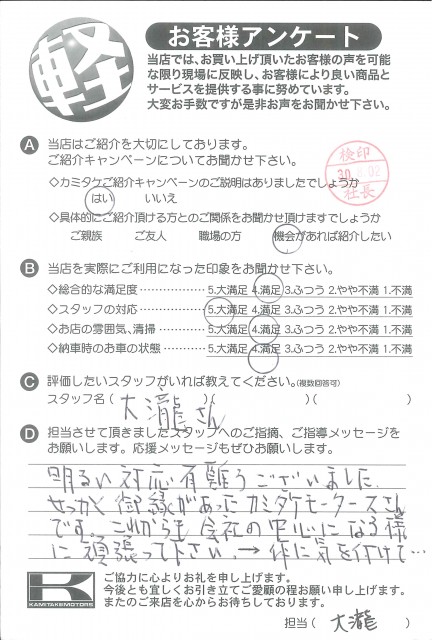 軽
お客様アンケート
当店では、お買い上げ頂いたお客様の声を可能
な限り現場に反映し、お客様により良い商品と
サービスを提供する事に努めています。
大変お手数ですが是非お声をお聞かせ下さい。
A 当店はご紹介を大切にしております。
ご紹介キャンペーンについてお聞かせ下さい。
検印
30. 02
社長
◇カミタケご紹介キャンペーンのご説明はありましたでしょうか
はい いいえ
◇具体的にご紹介頂ける方とのご関係をお聞かせ頂けますでしょうか
ご親族 ご友人 職場の方 機会があれば紹介したい
B 当店を実際にご利用になった印象をお聞かせ下さい。
◇総合的な満足度 5.大満足 4.満足 3.ふつう 2.やや不満 1.不満
◇スタッフの対応 5.大満足 4.満足 3.ふつう 2.やや不満 1.不満
◇お店の雰囲気、清掃 5.大満足 4.満足 3.ふつう 2.やや不満 1.不満
◇納車時のお車の状態 5.大満足 4.満足 3.ふつう 2.やや不満 1.不満
C 評価したいスタッフがいれば教えてください。(複数回答可)
スタッフ名( 大瀧さん )( )( )
D 担当させて頂きましたスタッフへのご指摘、ご指導メッセージを
お願いします。応援メッセージもぜひお願いします。
明るい対応有難うございました。
せっかく御縁があったカミタケモータースさん
です。これからも会社の中心になる様
に頑張って下さい。→体に気を付けて…
K
KAMITAKEMOTORS
ご協力に心よりお礼を申し上げます。
今後とも宜しくお引き立てご愛顧の程お願い申し上げます。
またのご来店を心からお待ちしております。
担当( 大瀧 )